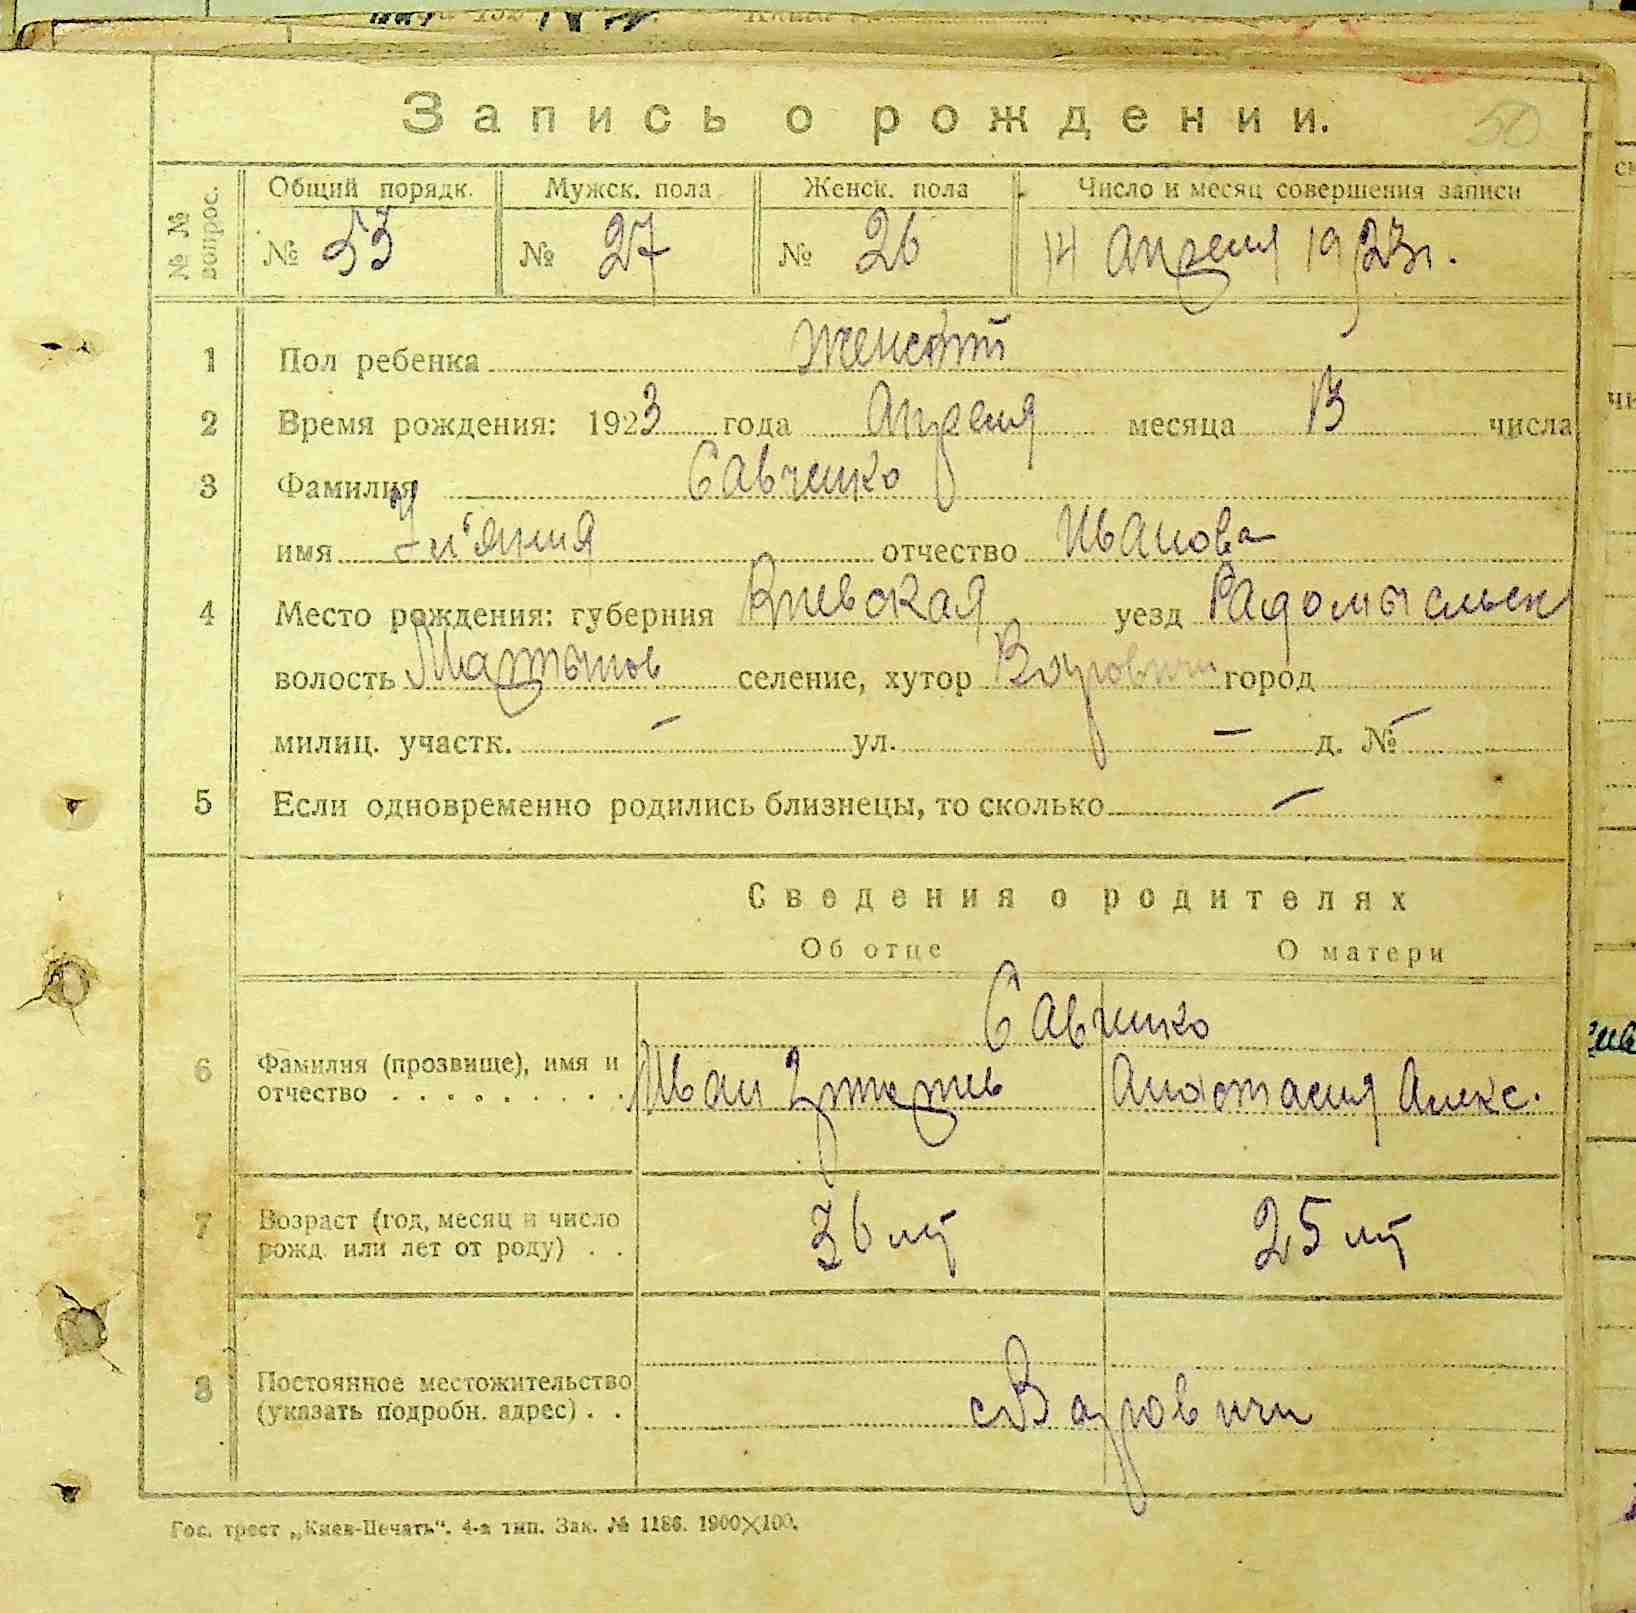 Запись о рождении.
50
№ № вопрос.
Общий порядк. Мужск. пола Женск. пола Число и месяц совершения записи
№ 53 № 27 № 26 14 апреля 1923 г.
1 Пол ребенка женский
2 Время рождения: 1923 года Апреля месяца 13 числа
3 Фамилия Савченко
имя отчество Иванова
4 Место рождения: губерния Киевская уезд Радомысльск
волость Мартынов селение, хутор Варовичи город
милиц. участк. – ул. – д. № –
5 Если одновременно родились близнецы, то сколько –
Сведения о родителях
Об отце О матери
Савченко
6 Фамилия (прозвище), имя и отчество . . . . . . . . . Иван Анастасия Алекс.
7 Возраст (год, месяц и число рожд. или лет от роду) . . 36 лет 25 лет
8 Постоянное местожительство (указать подробн. адрес) . . с Варовичи
Гос. трест „Киев-Печать“. 4-я тип. Зак. № 1186. 1900×100.